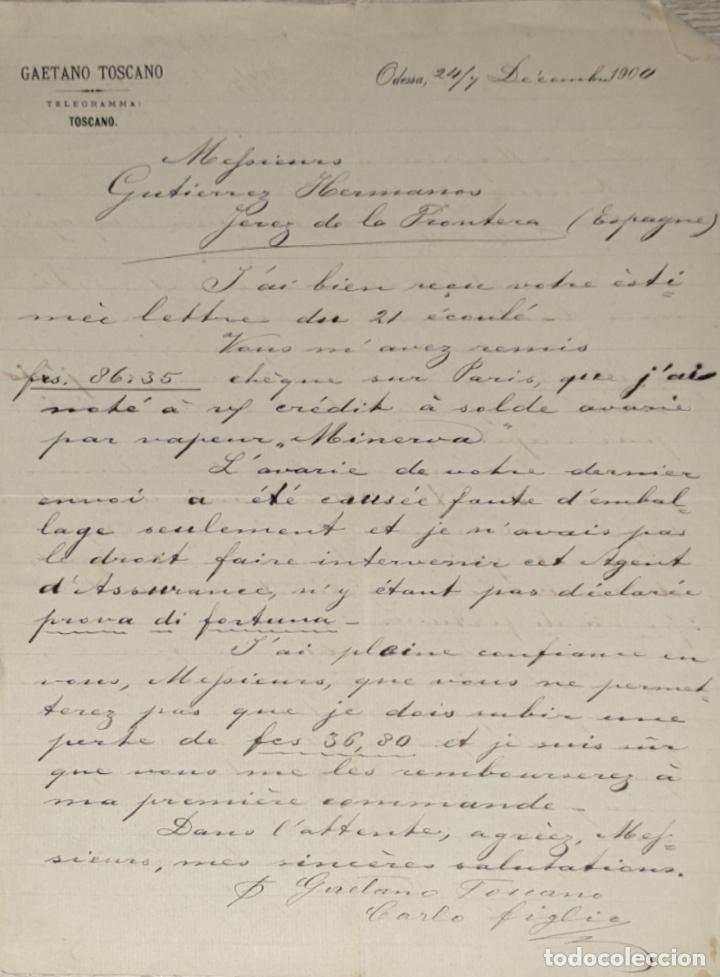 GAETANO TOSCANO
TELEGRAMMA:
TOSCANO.
Odessa, 24/7 Décembre 1900
Messieurs
Gutierrez Hermanos
Jerez de la Frontera (Espagne)
J'ai bien reçu votre èsti=
mèe lettre du 21 écoulé_
Vous m'avez remis
frs. 86.35 chèque sur Paris, que j'ai
noté à v/ crédit à solde avarie
par vapeur „Minerva"
L'avarie de votre dernier
envoi a été causée faute d'embal=
lage seulement et je n'avais pas
le droit faire intervenir cet Agent
d'Assurance, n'y étant pas déclarée
prova di fortuna_
J'ai pleine confiance en
vous, Messieurs, que vous ne permet=
terez pas que je dois subir une
perte de fcs 36,80 et je suis sûr
que vous me les rembourserez à
ma première commande_
Dans l'attente, agréez, Mes=
sieurs, mes sincères salutations.
Gaetano Toscano
Carlo figlio
todocoleccion